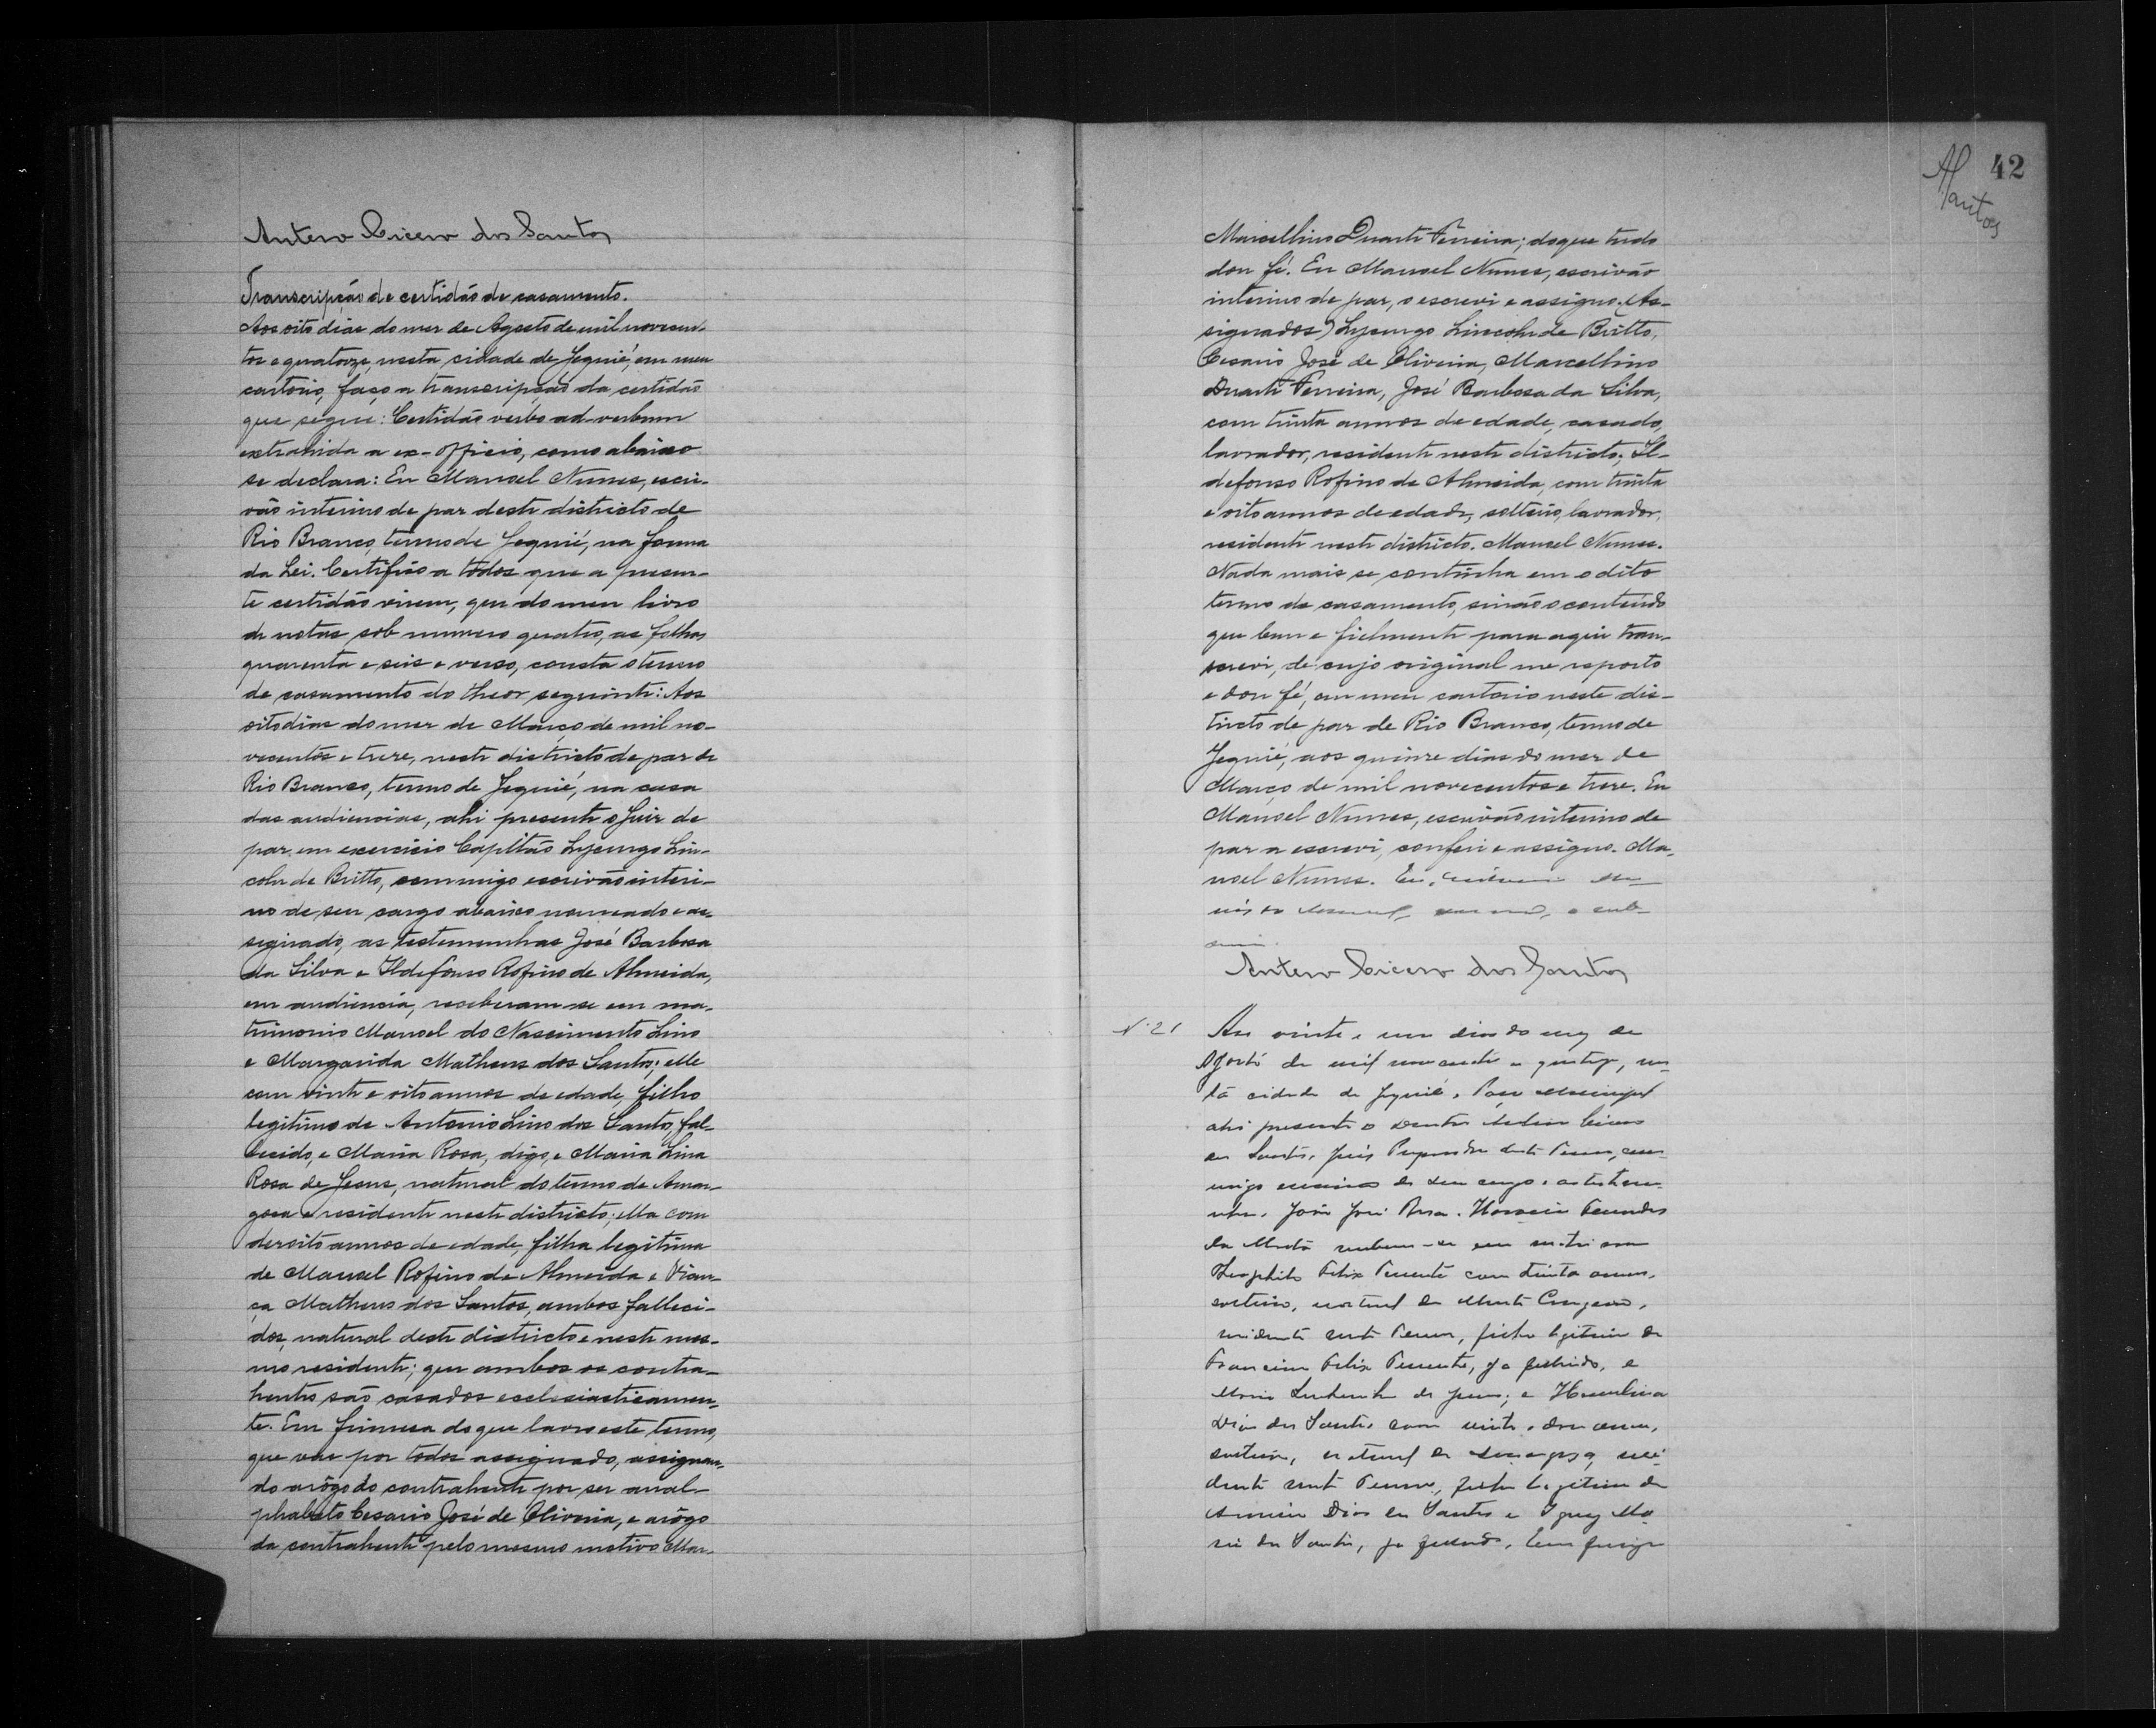 Antero Cicero dos Santos
Transcripção de certidão de casamento.
Aos oito dias do mez de Agosto de mil novecen-
tos e quatorze, nesta cidade de Jequié, em meu
cartorio, faço a transcripção da certidão
que segue: Certidão verbo ad verbum
extrahida a ex-officio, como abaixo
se declara: Eu Manoel Nunes, escri-
vão interino de paz deste districto de
Rio Branco, termo de Jequié, na forma
da Lei. Certifico a todos que a presen-
te certidão virem, que do meu livro
de notas sob numero quatro, as folhas
quarenta e seis e verso, consta o termo
de casamento do theor seguinte: Aos
oito dias do mez de Março de mil no-
vecentos e treze, neste districto de paz de
Rio Branco, termo de Jequié, na casa
das audiencias, ahi presente o Juiz de
paz em exercicio Capitão Lycurgo Lin-
coln de Britto, commigo escrivão interi-
no de seu cargo abaixo nomeado e as-
signado, as testemunhas José Barbosa
da Silva e Ildefonso Rofino de Almeida,
em audiencia, receberam-se em ma-
trimonio Manoel do Nascimento Lino
e Margarida Matheus dos Santos; elle
com vinte e oito annos de edade, filho
legitimo de Antonio Lino dos Santos, fal-
lecido, e Maria Rosa, digo, e Maria Lina
Rosa de Jesus, natural do termo de Amar-
gosa e residente neste districto; ella com
dezoito annos de edade, filha legitima
de Manoel Rofino de Almeida e
Matheus dos Santos, ambos falleci-
dos, natural deste districto e neste mes-
mo residente; que ambos os contra-
hentes são casados ecclesiasticamen-
te. Em firmesa do que lavro este termo,
que vae por todos assignado, assignan-
do arôgo do contrahente por ser anal-
phabeto Cesario José de Oliveira, e arôgo
da contrahente pelo mesmo motivo Mar-
42
ASantos
Marcellino Duarte Ferreira; do que tudo
dou fé. Eu Manoel Nunes, escrivão
interino de paz, o escrevi e assigno. As-
signados) Lycurgo Lincoln de Britto,
Cesario José de Oliveira, Marcellino
Duarte Ferreira, José Barbosa da Silva,
com trinta annos de edade, casado,
lavrador, residente neste districto; Il-
defonso Rofino de Almeida, com trinta
e oito annos de edade, solteiro, lavrador,
residente neste districto. Manoel Nunes.
Nada mais se continha em o dito
termo de casamento, sinão o conteúdo
que bem e fielmente para aqui tran-
screvi, de cujo original me reporto
e dou fé, em meu cartorio neste dis-
tricto de paz de Rio Branco, termo de
Jequié, aos quinze dias do mez de
Março de mil novecentos e treze. Eu
Manoel Nunes, escrivão interino de
paz a escrevi, conferi e assigno. Ma-
noel Nunes. Eu,
o sub-
Antero Cicero dos Santos
N. 21
Aos vinte e um dias do mez de
Agosto de mil novecentos e quatorze, nes-
ta cidade de Jequié, Paço Municipal
ahi presente o Doutor Antero Cicero
dos Santos, Juiz Preparador deste Termo, com-
migo escrivão de seu cargo e as testemu-
nhas José José Rosa. Fernandes
da Motta recebem-se em matrimonio
Theophilo Felix com trinta annos,
solteiro, natural de
residente neste Termo, filho legitimo de
Felix ja fallecido, e
Maria de Jesus; e
Dias dos Santos com vinte e dois annos,
solteira, natural de Amargosa, resi-
dente neste Termo, filha legitima de
Dias dos Santos e Ignez Ma-
ria dos Santos, ja